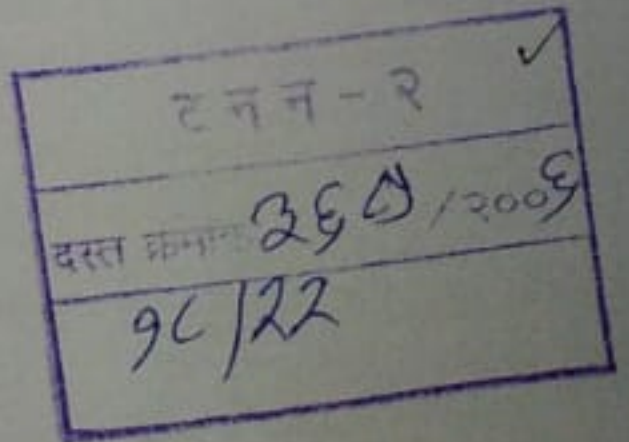 ट न न - २
दस्त क्रमांक ३६७ /२००६
१८/22